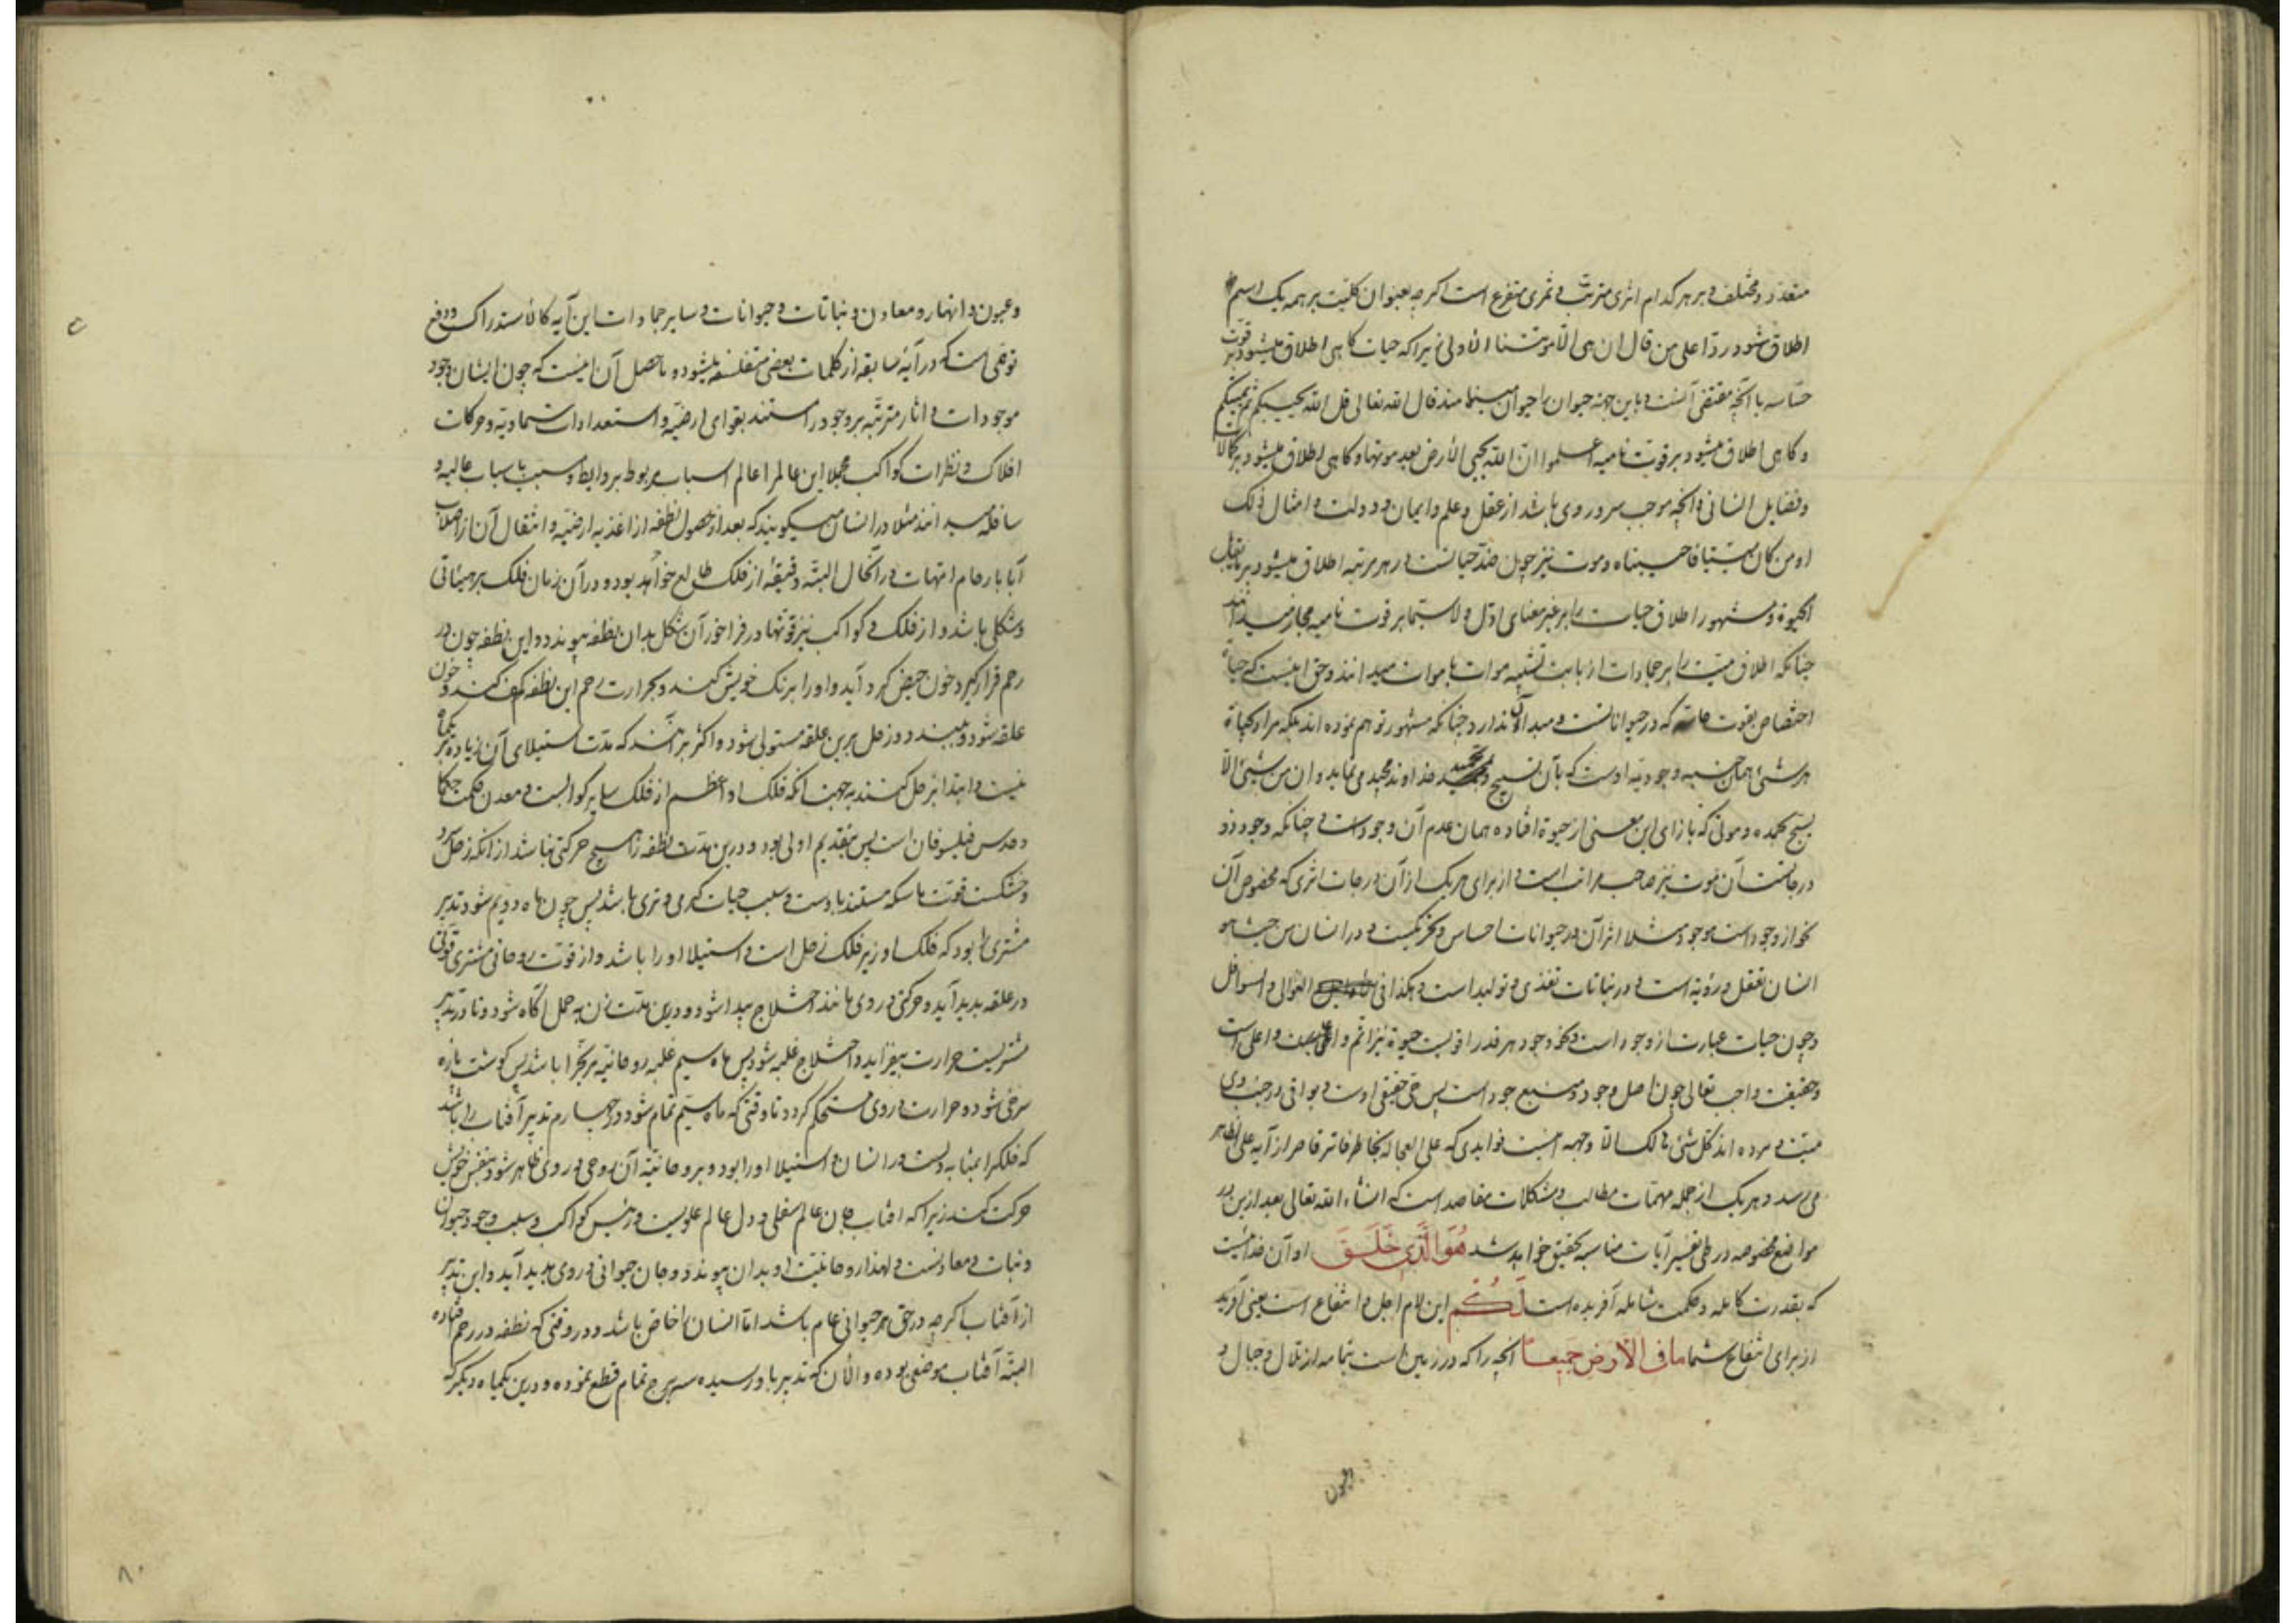 متعدد و مختلف و بر هر کدام اثری مترتب و ثمری متفرع است اگر چه بعنوان کلیت بر همه یک اسم
اطلاق شود ردا علی من قال ان هی الا موتتنا الاولی زیرا که حیات کاهی اطلاق میشود بر قوت
حساسه با آنچه مقتضی آنست و باین جهة حیوان را حیوان مینامند قال الله تعالی قل الله یحییکم ثم یمیتکم
و کاهی اطلاق میشود بر قوت نامیه اعلموا ان الله یحیی الارض بعد موتها و کاهی اطلاق میشود بر کمالات
و فضایل انسانی و آنچه موجب سرور وی باشد از عقل و علم و ایمان و دولت و امثال ذلک
او من کان میتا فاحییناه و موت نیز چون ضد حیاتست در هر مرتبه اطلاق میشود بر مقابل
الحیوة و مشهور اطلاق حیات را بر غیر معنای اول و لاسیما بر قوت نامیه مجاز میدانند
چنانکه اطلاق میت را بر جمادات از بابت تشبیه موات باموات میدانند و حق اینست که حیاة
اختصاص بقوت حاسه که در حیوانانست و مبدا آن ندارد چنانکه مشهور توهم نموده اند بلکه مراد بحیاة
هر شئ همان جنبه وجودیه اوست که بآن تسبیح و تمجید خداوند مجید می نماید و ان من شیئ الا
یسبح بحمده و موتی که بازای این معنی از حیوة افتاده همان عدم آن وجود است و چنانکه وجود ذو
درجاتست آن موت نیز صاحب مراتب است و از برای هر یک از آن درجات اثری که مخصوص آن
نحو از وجود است موجود مثلا اثر آن در حیوانات احساس و تحرکیست و در انسان من حیث هو
انسان تعقل و رؤیة است و در نباتات تغذی و تولید است و هکذا فی العوالی و السوافل
و چون حیات عبارت از وجود است و نحو وجود هر قدر اقویست حیوة نیز اتم و اعلی است
و حقیقت واجب تعالی چون اصل وجود و منبع جود است پس حی حقیقی اوست و بواقی در جنب وی
میت و مرده اند کل شئ هالک الا وجهه اینست فوایدی که علی العجاله بخاطر فاتر قاصر از آیه علی الظاهر
می رسد و هر یک از جمله مهمات مطالب و مشکلات مقاصد است که انشاء الله تعالی بعد ازین در
مواضع مخصوصه در طی تفسیر آیات مناسبه تحقیق خواهد شد هُوَ الَّذِی خَلَقَ او آن خدائیست
که بقدرت کامله و حکمت شامله آفریده است لَکُم این لام اجل و انتفاع است یعنی آفرید
از برای انتفاع شما ما فی الارض جمیعا آنچه را که در زمین است تمامه از تلال و جبال و
و عیون و انهار و معادن و نباتات و حیوانات و سایر جمادات این آیه کالاستدراک و دفع
توهمی است که در آیهٔ سابقه از کلمات بعض متفلسفه میشود و ماحصل آن اینست که چون ایشان وجود
موجودات و اثار مترتبه بر وجود را مستند بقوای ارضیه و استعدادات سماویه و حرکات
افلاک و نظرات کواکب مجملا این عالم را عالم اسباب مربوط بروابط و مسبب باسباب عالیه و
سافله میدانند مثلا در انسان میکویند که بعد از حصول نطفه از اغذیه ارضیه و انتقال آن از اصلاب
آبا بارحام امهات در آنحال البته دقیقهٔ از فلک طالع خواهد بود و در آن زمان فلک بر هیئاتی
و شکلی باشد و از فلک و کواکب نیز قوتها در فراخور آن شکل بدان نطفه پیوندد و این نطفه چون در
رحم قرار کیرد خون حیض کرد آید و او را برنک خویش کند و بحرارت رحم این نطفه کف کند و خون
علقه شود و ببندد و زحل برین علقه مستولی شود و اکثر برآنند که مدت استیلای آن زیاده بر یکماه
نیست و ابتدا بزحل کنند بجهت آنکه فلک او اعظم از فلک سایر کواکبست و معدن حکمت حکما
و مدرس فیلسوفان است پس بتقدیم اولی بود و درین مدت نطفه را هیچ حرکتی نباشد از آنکه زحل سرد
و خشکست قوت ماسکه مستند باوست و سبب حیات کرمی و تری باشد پس چون ماه دویم شود تدبیر
مشتری را بود که فلک او زیر فلک زحل است و استیلا او را باشد و از قوت روحانی مشتری قوتی
در علقه پدید آید و حرکتی در وی مانند اختلاج پیدا شود و درین مدت زن بحمل آکاه شود و تا در تدبیر
مشتریست حرارت بیفزاید و اختلاج غلبه شود پس ماه سیم غلبه روحانیة مریخ را باشد پس کوشت پاره
سرخی شود و حرارت در وی مستحکم کردد تا وقتی که ماه سیم تمام شود و در چهارم تدبیر آفتاب را باشد
که فلک را بمثابه دلست در انسان و استیلا او را بود و بروحانیة آن روحی در وی ظاهر شود و بنفس خویش
حرکت کند زیرا که افتاب جان عالم سفلی و دل عالم علویست و رئیس کواکب و سبب وجود حیوان
و نبات و معادنست و لهذا روحانیت او بدان پیوندد و جان حیوانی در وی پدید آید و این تدبیر
از آفتاب اکر چه در حق هر حیوانی عام باشد اما انسان را خاص باشد و در وقتی که نطفه در رحم افتاده
البته آفتاب موضعی بوده و الان که تدبیر باو رسیده سه برج تمام قطع نموده و درین یکماه دیکر که